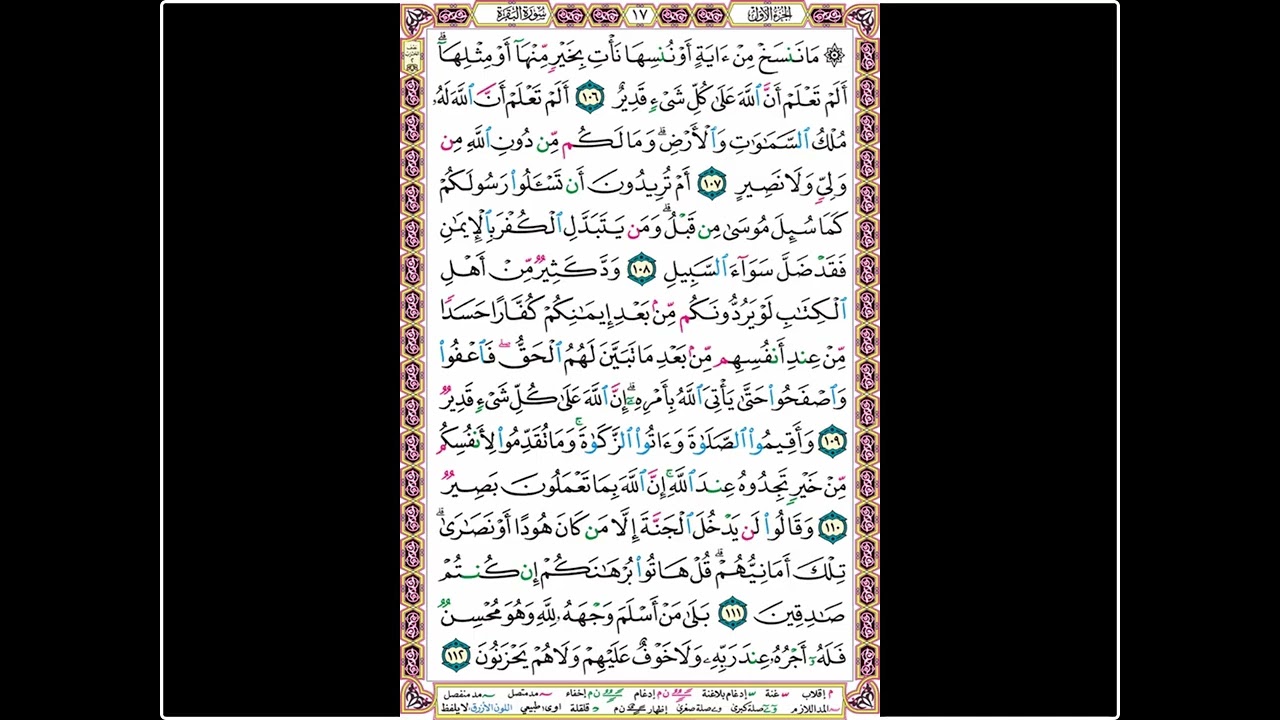 الجزء الأول ١٧ سورة البقرة
۞ مَا نَنسَخْ مِنْ ءَايَةٍ أَوْ نُنسِهَا نَأْتِ بِخَيْرٍ مِّنْهَآ أَوْ مِثْلِهَآ ۗ
أَلَمْ تَعْلَمْ أَنَّ ٱللَّهَ عَلَىٰ كُلِّ شَىْءٍ قَدِيرٌ ١٠٦ أَلَمْ تَعْلَمْ أَنَّ ٱللَّهَ لَهُۥ
مُلْكُ ٱلسَّمَـٰوَٰتِ وَٱلْأَرْضِ ۗ وَمَا لَكُم مِّن دُونِ ٱللَّهِ مِن
وَلِىٍّ وَلَا نَصِيرٍ ١٠٧ أَمْ تُرِيدُونَ أَن تَسْـَٔلُوا۟ رَسُولَكُمْ
كَمَا سُئِلَ مُوسَىٰ مِن قَبْلُ ۗ وَمَن يَتَبَدَّلِ ٱلْكُفْرَ بِٱلْإِيمَـٰنِ
فَقَدْ ضَلَّ سَوَآءَ ٱلسَّبِيلِ ١٠٨ وَدَّ كَثِيرٌ مِّنْ أَهْلِ
ٱلْكِتَـٰبِ لَوْ يَرُدُّونَكُم مِّنۢ بَعْدِ إِيمَـٰنِكُمْ كُفَّارًا حَسَدًا
مِّنْ عِندِ أَنفُسِهِم مِّنۢ بَعْدِ مَا تَبَيَّنَ لَهُمُ ٱلْحَقُّ ۖ فَٱعْفُوا۟
وَٱصْفَحُوا۟ حَتَّىٰ يَأْتِىَ ٱللَّهُ بِأَمْرِهِۦٓ ۗ إِنَّ ٱللَّهَ عَلَىٰ كُلِّ شَىْءٍ قَدِيرٌ
١٠٩ وَأَقِيمُوا۟ ٱلصَّلَوٰةَ وَءَاتُوا۟ ٱلزَّكَوٰةَ ۚ وَمَا تُقَدِّمُوا۟ لِأَنفُسِكُم
مِّنْ خَيْرٍ تَجِدُوهُ عِندَ ٱللَّهِ ۗ إِنَّ ٱللَّهَ بِمَا تَعْمَلُونَ بَصِيرٌ
١١٠ وَقَالُوا۟ لَن يَدْخُلَ ٱلْجَنَّةَ إِلَّا مَن كَانَ هُودًا أَوْ نَصَـٰرَىٰ ۗ
تِلْكَ أَمَانِيُّهُمْ ۗ قُلْ هَاتُوا۟ بُرْهَـٰنَكُمْ إِن كُنتُمْ
صَـٰدِقِينَ ١١١ بَلَىٰ مَنْ أَسْلَمَ وَجْهَهُۥ لِلَّهِ وَهُوَ مُحْسِنٌ
فَلَهُۥٓ أَجْرُهُۥ عِندَ رَبِّهِۦ وَلَا خَوْفٌ عَلَيْهِمْ وَلَا هُمْ يَحْزَنُونَ ١١٢
م إقلاب غنة إدغام بلاغنة ن م إدغام ن م إخفاء مد متصل مد منفصل
المد اللازم صلة كبرى صلة صغرى إظهار ن م قلقلة اوى: طبيعي اللون الأزرق: لا يلفظ